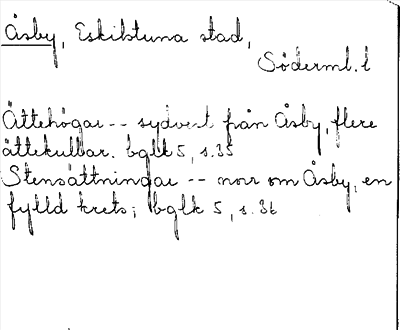 Åsby, Eskilstuna stad,
Söderml. l
Ättehögar -- sydvest från Åsby, flere
ättekullar. bglk 5, s. 35
Stensättningar -- norr om Åsby, en
fylld krets; bglk 5, s. 36